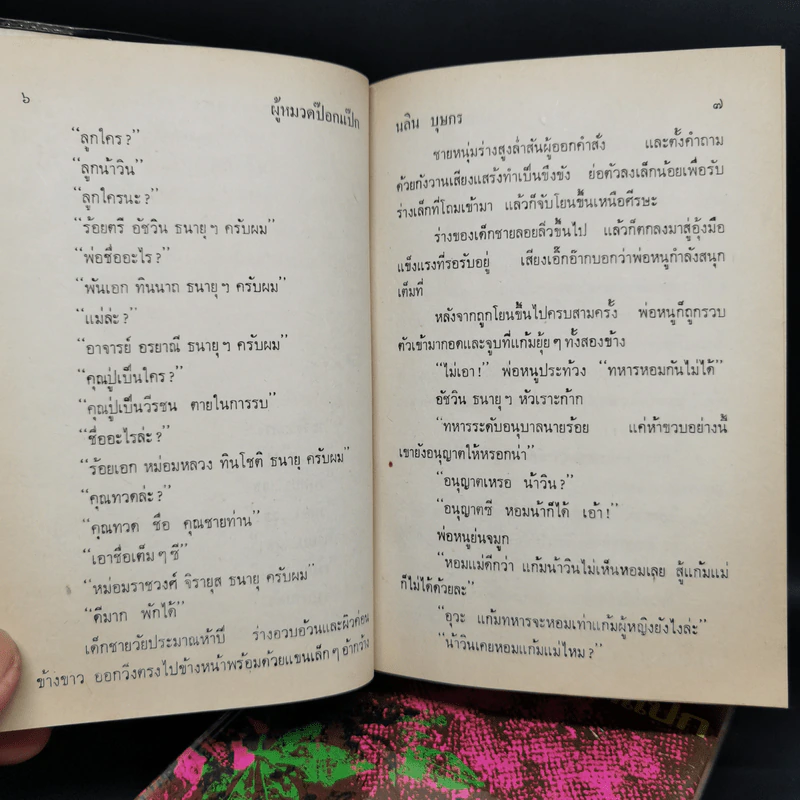 ๖
ผู้หมวดป๊อกแป๊ก
“ลูกใคร?”
“ลูกน้าวิน”
“ลูกใครนะ?”
“ร้อยตรี อัชวิน ธนายุฯ ครับผม”
“พ่อชื่ออะไร?”
“พันเอก ทินนาถ ธนายุฯ ครับผม”
“แม่ล่ะ?”
“อาจารย์ อรยาณี ธนายุฯ ครับผม”
“คุณปู่เป็นใคร?”
“คุณปู่เป็นวีรชน ตายในการรบ”
“ชื่ออะไรล่ะ?”
“ร้อยเอก หม่อมหลวง ทินโชติ ธนายุ ครับผม”
“คุณทวดล่ะ?”
“คุณทวด ชื่อ คุณชายท่าน”
“เอาชื่อเต็มๆซี”
“หม่อมราชวงศ์ จิรายุส ธนายุ ครับผม”
“ดีมาก พักได้”
เด็กชายวัยประมาณห้าปี ร่างอวบอ้วนและผิวค่อน
ข้างขาว ออกวิ่งตรงไปข้างหน้าพร้อมด้วยแขนเล็กๆอ้ากว้าง
๗
นลิน บุษกร
ชายหนุ่มร่างสูงล่ำสันผู้ออกคำสั่ง และตั้งคำถาม
ด้วยกังวานเสียงแสร้งทำเป็นขึงขัง ย่อตัวลงเล็กน้อยเพื่อรับ
ร่างเล็กที่โถมเข้ามา แล้วก็จับโยนขึ้นเหนือศีรษะ
ร่างของเด็กชายลอยลิ่วขึ้นไป แล้วก็ตกลงมาสู่อุ้งมือ
แข็งแรงที่รอรับอยู่ เสียงเอิ๊กอ๊ากบอกว่าพ่อหนูกำลังสนุก
เต็มที่
หลังจากถูกโยนขึ้นไปครบสามครั้ง พ่อหนูก็ถูกรวบ
ตัวเข้ามากอดและจูบที่แก้มยุ้ยๆทั้งสองข้าง
“ไม่เอา!” พ่อหนูประท้วง “ทหารหอมกันไม่ได้”
อัชวิน ธนายุฯ หัวเราะก้าก
“ทหารระดับอนุบาลนายร้อย แค่ห้าขวบอย่างนี้
เขายังอนุญาตให้หรอกน่า”
“อนุญาตเหรอ น้าวิน?”
“อนุญาตซี หอมน้าก็ได้ เอ้า!”
พ่อหนูย่นจมูก
“หอมแม่ดีกว่า แก้มน้าวินไม่เห็นหอมเลย สู้แก้มแม่
ก็ไม่ได้ด้วยละ”
“อุวะ แก้มทหารจะหอมเท่าแก้มผู้หญิงยังไงล่ะ”
“น้าวินเคยหอมแก้มแม่ไหม?”